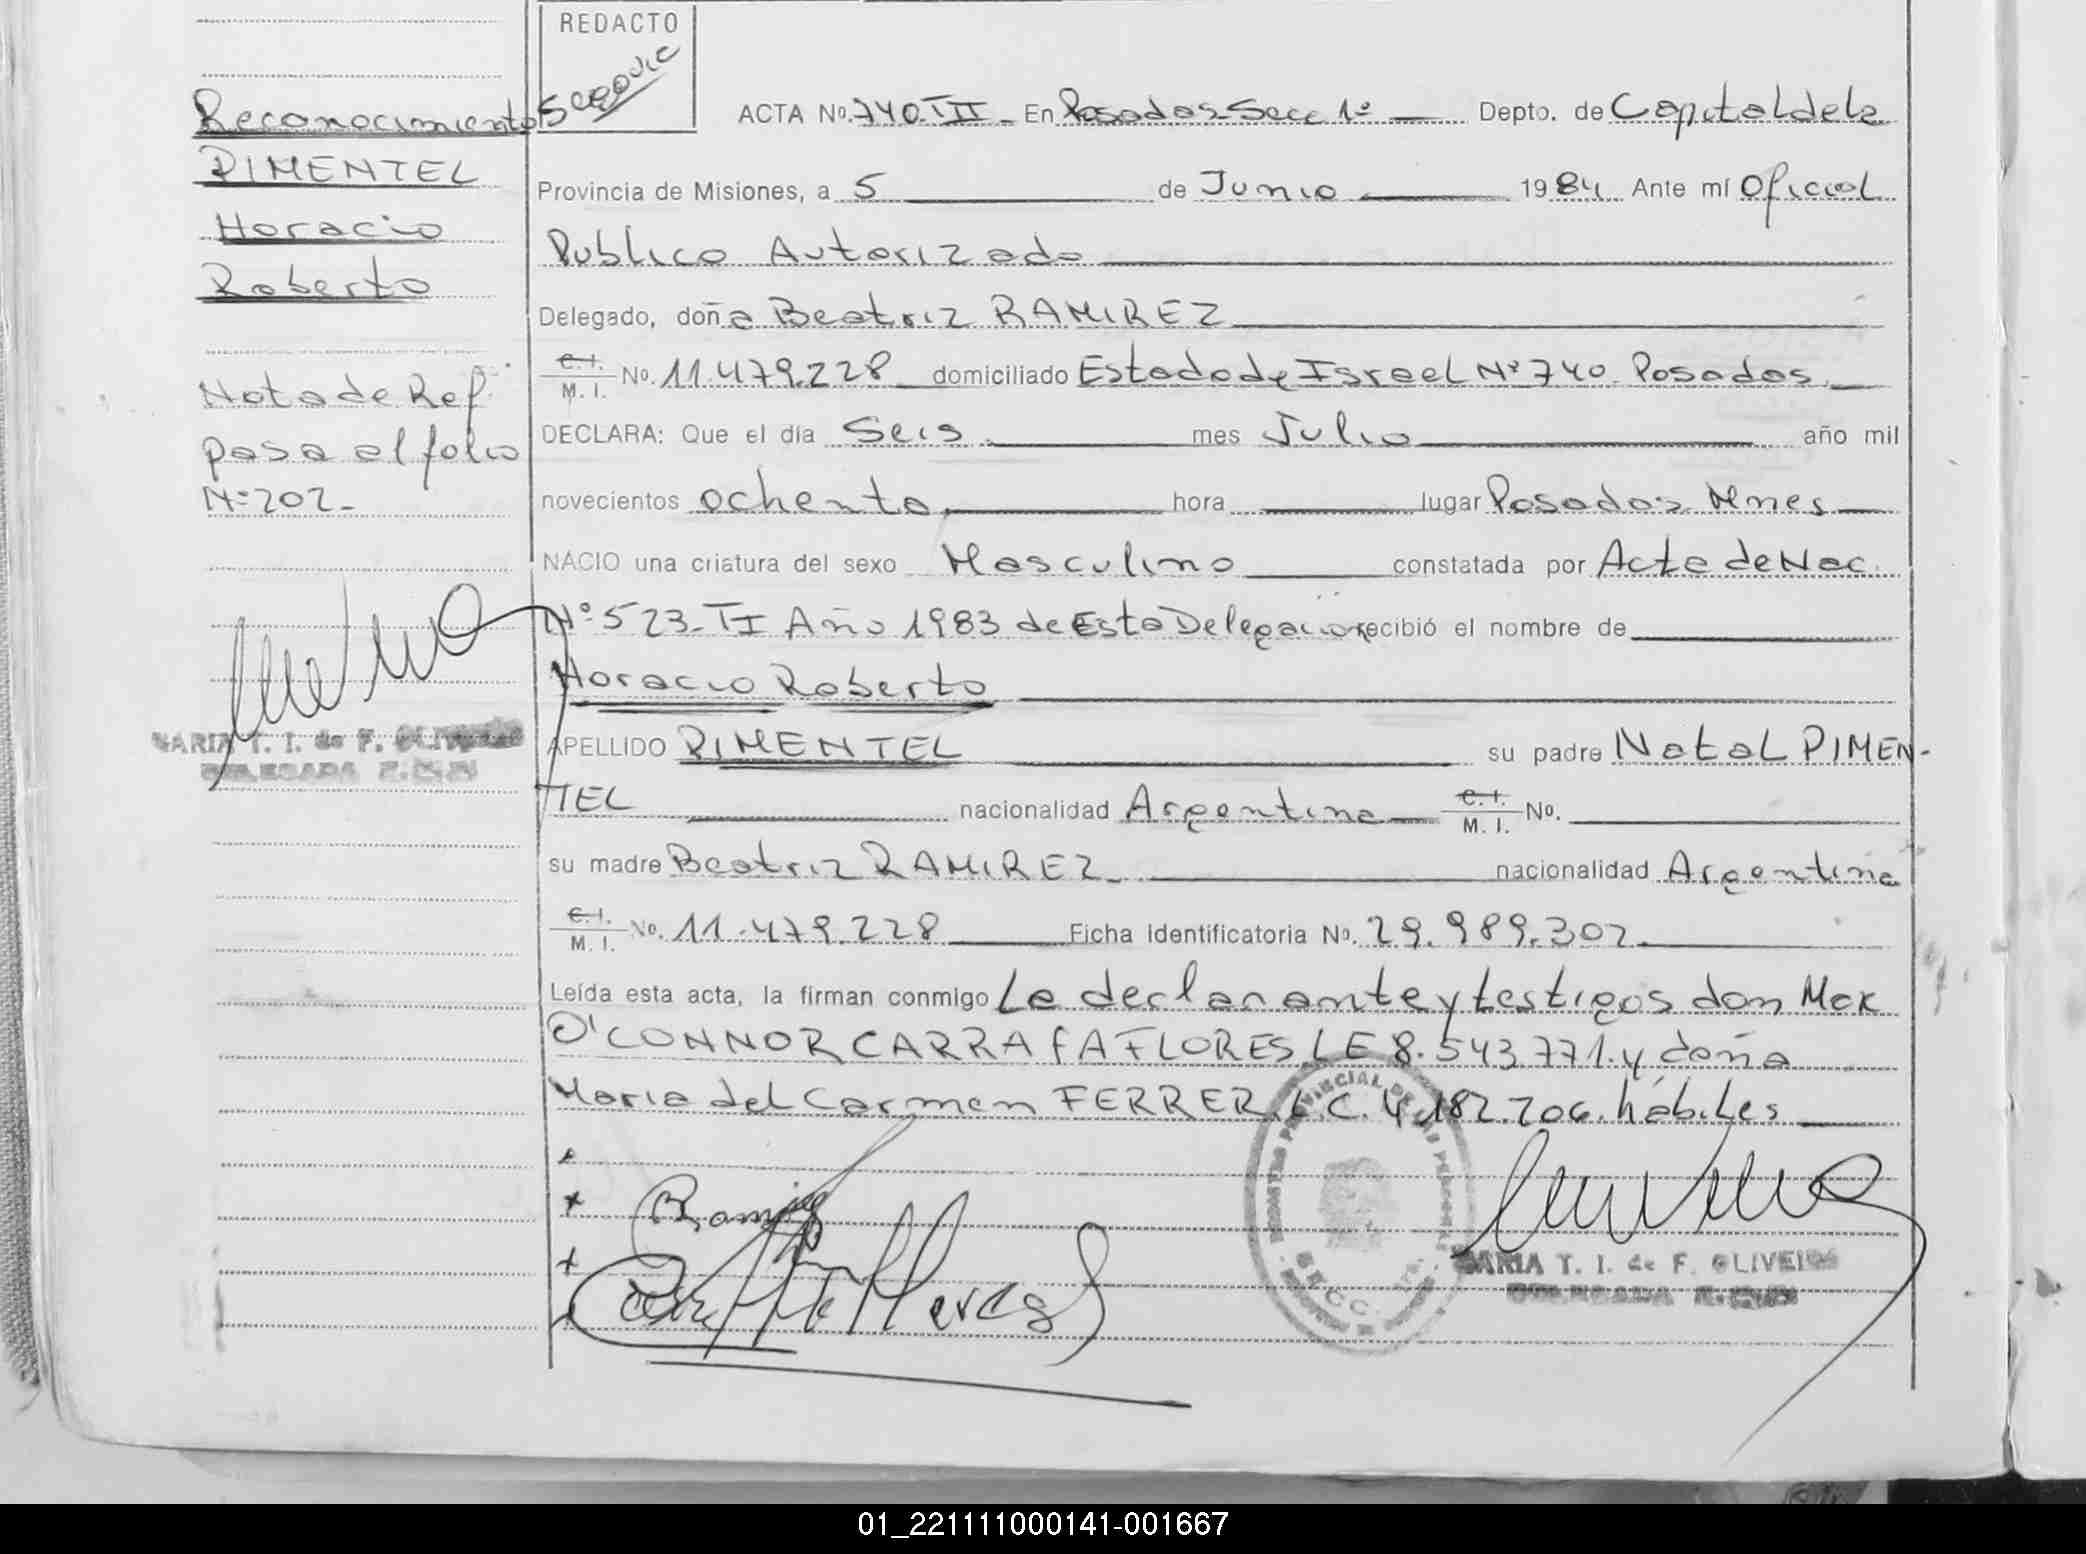 REDACTO
Reconocimiento
PIMENTEL
Horacio
Roberto
Nota de Ref.
pasa al folio
Nº 202-
MARIA T. I. de F. OLIVEIRA
DELEGADA
ACTA Nº. 740. TII - En Posadas Secc 1ª Depto. de Capital de la
Provincia de Misiones, a 5 de Junio 1984 Ante mí Oficial
Publico Autorizado
Delegado, doña Beatriz RAMIREZ
C.I. / M. I. No. 11.479.228 domiciliado Estado de Israel Nº 740. Posadas.
DECLARA: Que el día Seis. mes Julio año mil
novecientos ochenta, hora lugar Posadas Mnes
NACIO una criatura del sexo Masculino constatada por Acta de Nac.
Nº 523- TI Año 1983 de Esta Delegación recibió el nombre de
Horacio Roberto
APELLIDO PIMENTEL su padre Natal PIMEN-
TEL nacionalidad Argentina C.I. / M. I. No.
su madre Beatriz RAMIREZ. nacionalidad Argentina
C.I. / M. I. No. 11.479.228 Ficha Identificatoria No. 29.989.302.
Leída esta acta, la firman conmigo La declarante y testigos don Mak
O'CONNOR CARRAFA FLORES LE 8.543.771. y doña
Maria del Carmen FERRER. L.C. 4.182.206. hábiles
Ramirez
MARIA T. I. de F. OLIVEIRA
DELEGADA
01_221111000141-001667